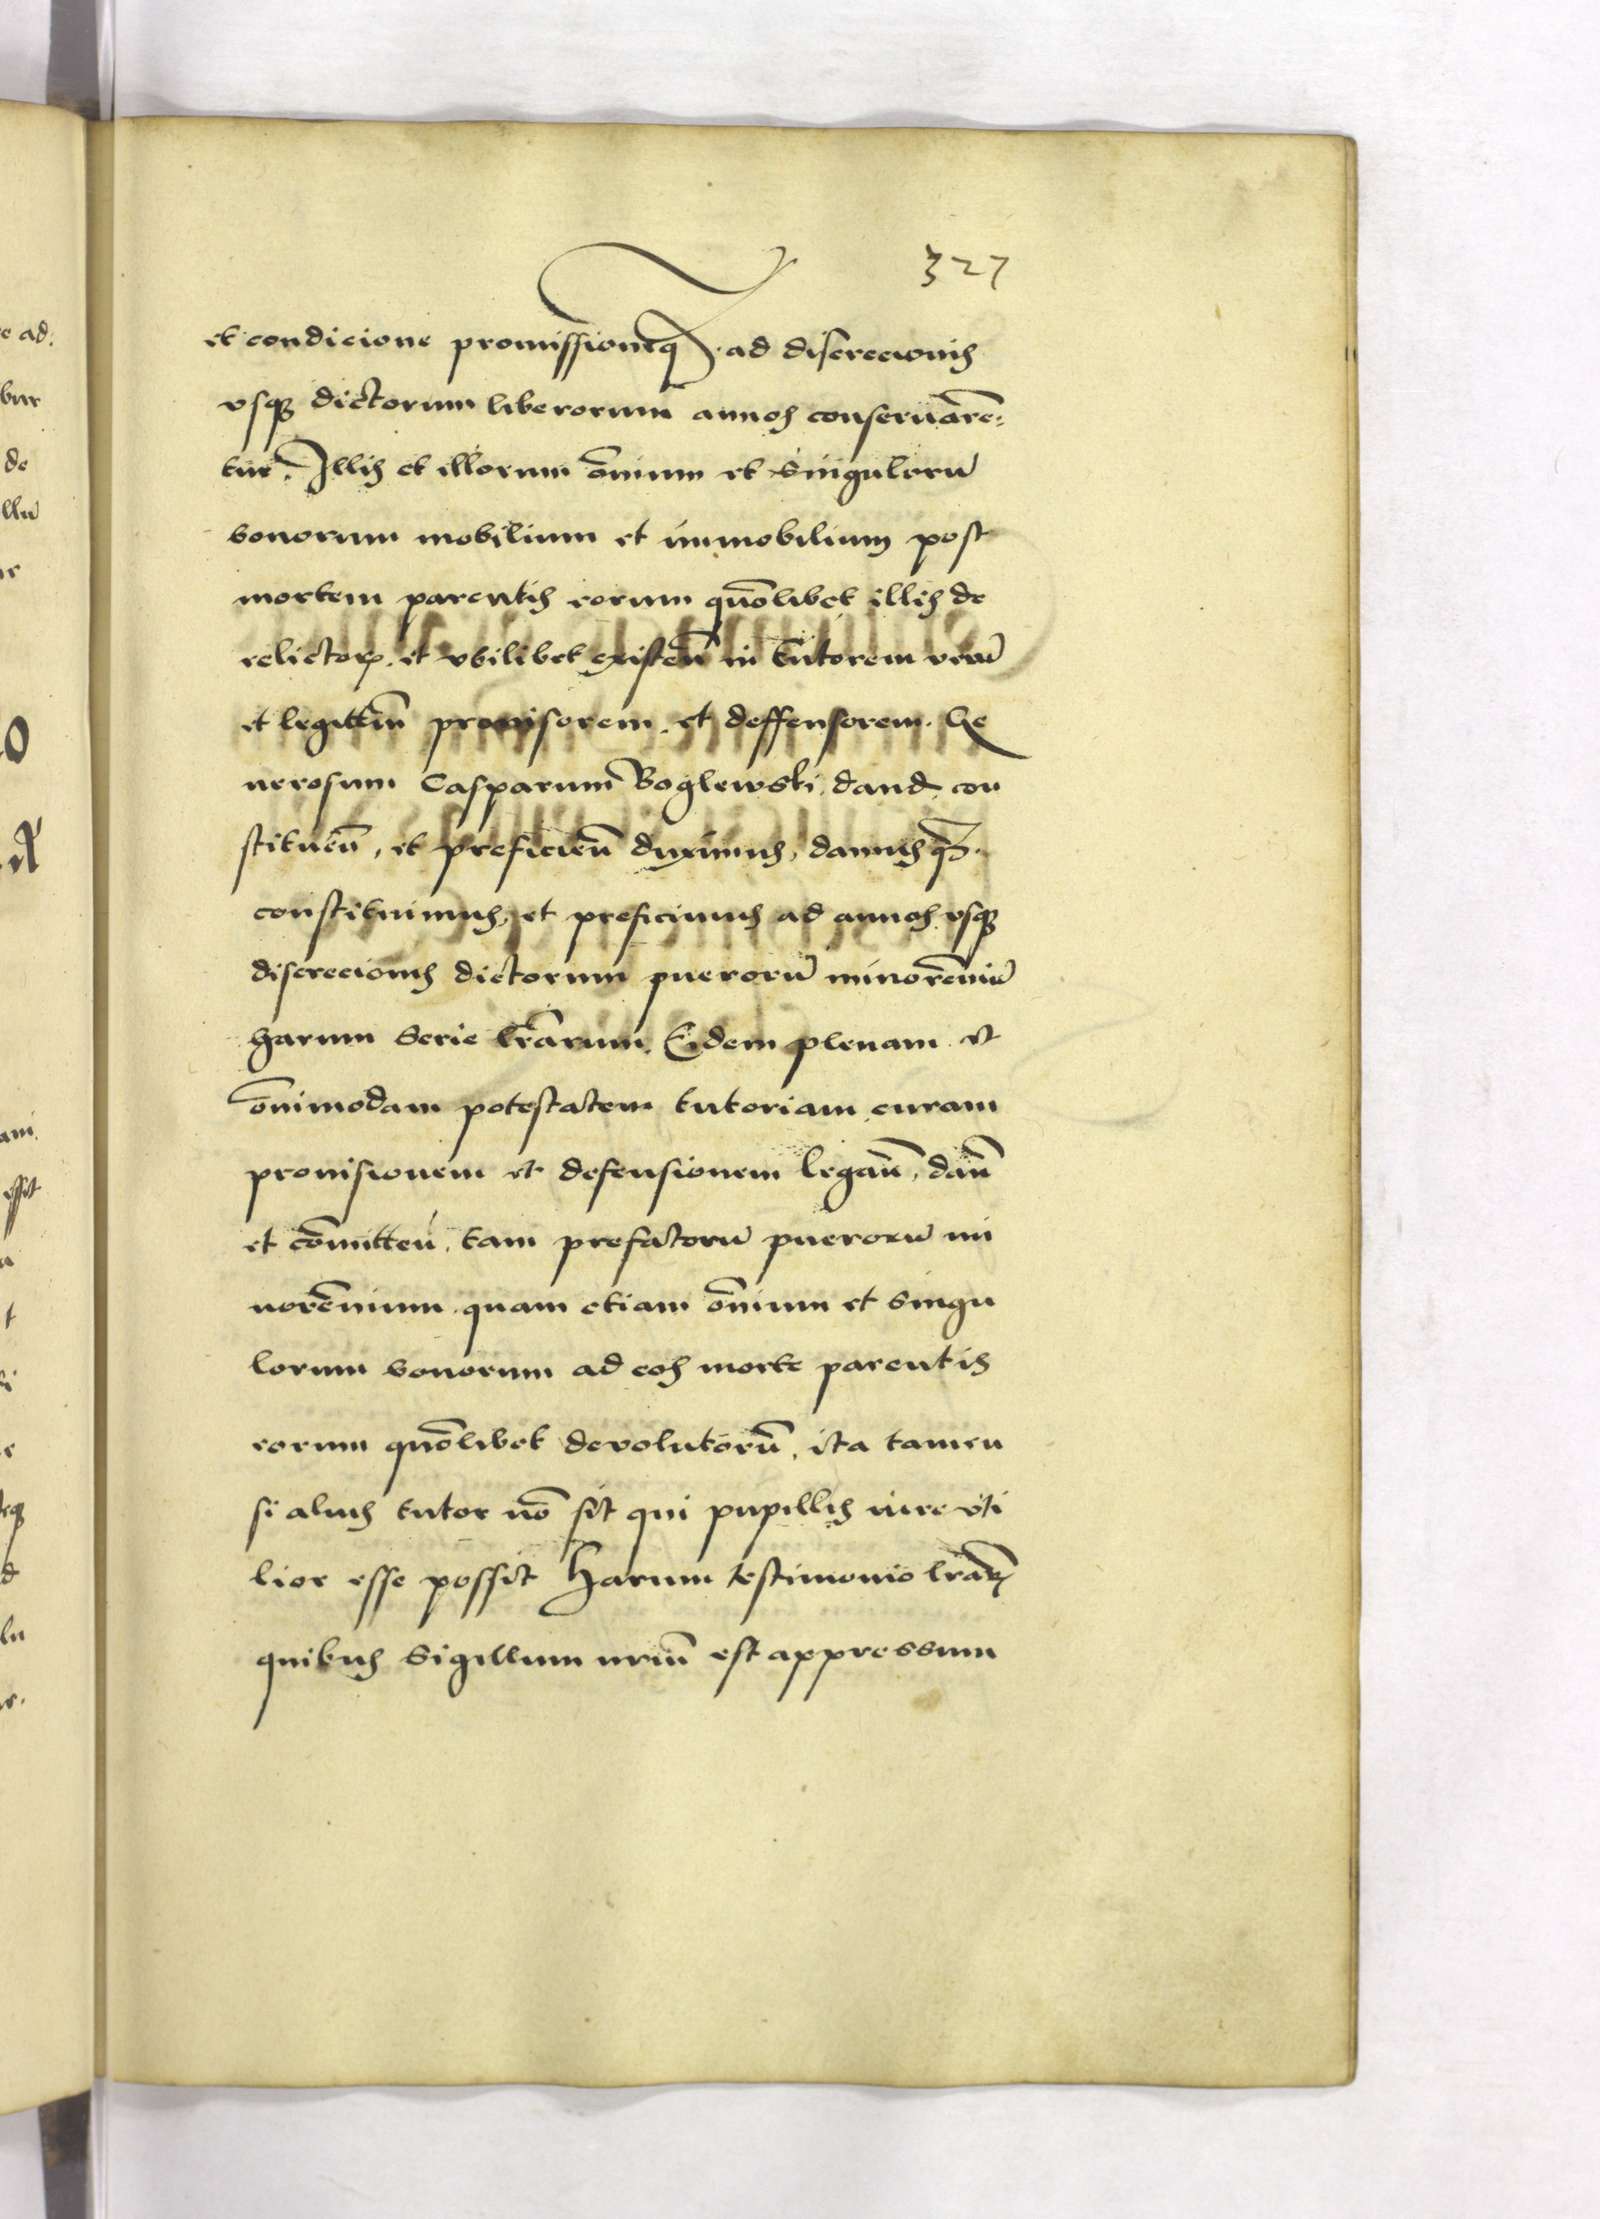 327
et condicione promissioneq3 ad discrecionis
vsq3 dictorum liberorum annos conseruare͂=
tur. Illis et illorum om̄ium et singuloru͂
bonorum mobilium et immobilium post
mortem parentis eorum quo͂libet illis de
relictoꝝ et vbilibet existen͂ in tutorem veru͂
et legittim͂ prouisorem et deffensorem. Ge
nerosum Casparum Boglewski dand con
stituen͂, et preficien͂ duximus, damusq3
constituimus, et preficimus ad annos vsq3
discrecionis dictorum pueroru͂ minore͂niu͂
harum serie l͂rarum. Eidem plenam et
om͂imodam potestatem tutoriam curam
prouisionem et defensionem legan͂, dan͂
et co͂mitten͂, tam prefatoru͂ pueroru͂ mi
nore͂nium quam etiam om͂ium et singu
lorum bonorum ad eos morte parentis
eorum quo͂libet deuolutoru͂, ita tamen
si alius tutor no͂ sit qui pupillis iure vti
lior esse possit Harum testimonio l͂raꝝ
quibus Sigillum nr͂um est appressum